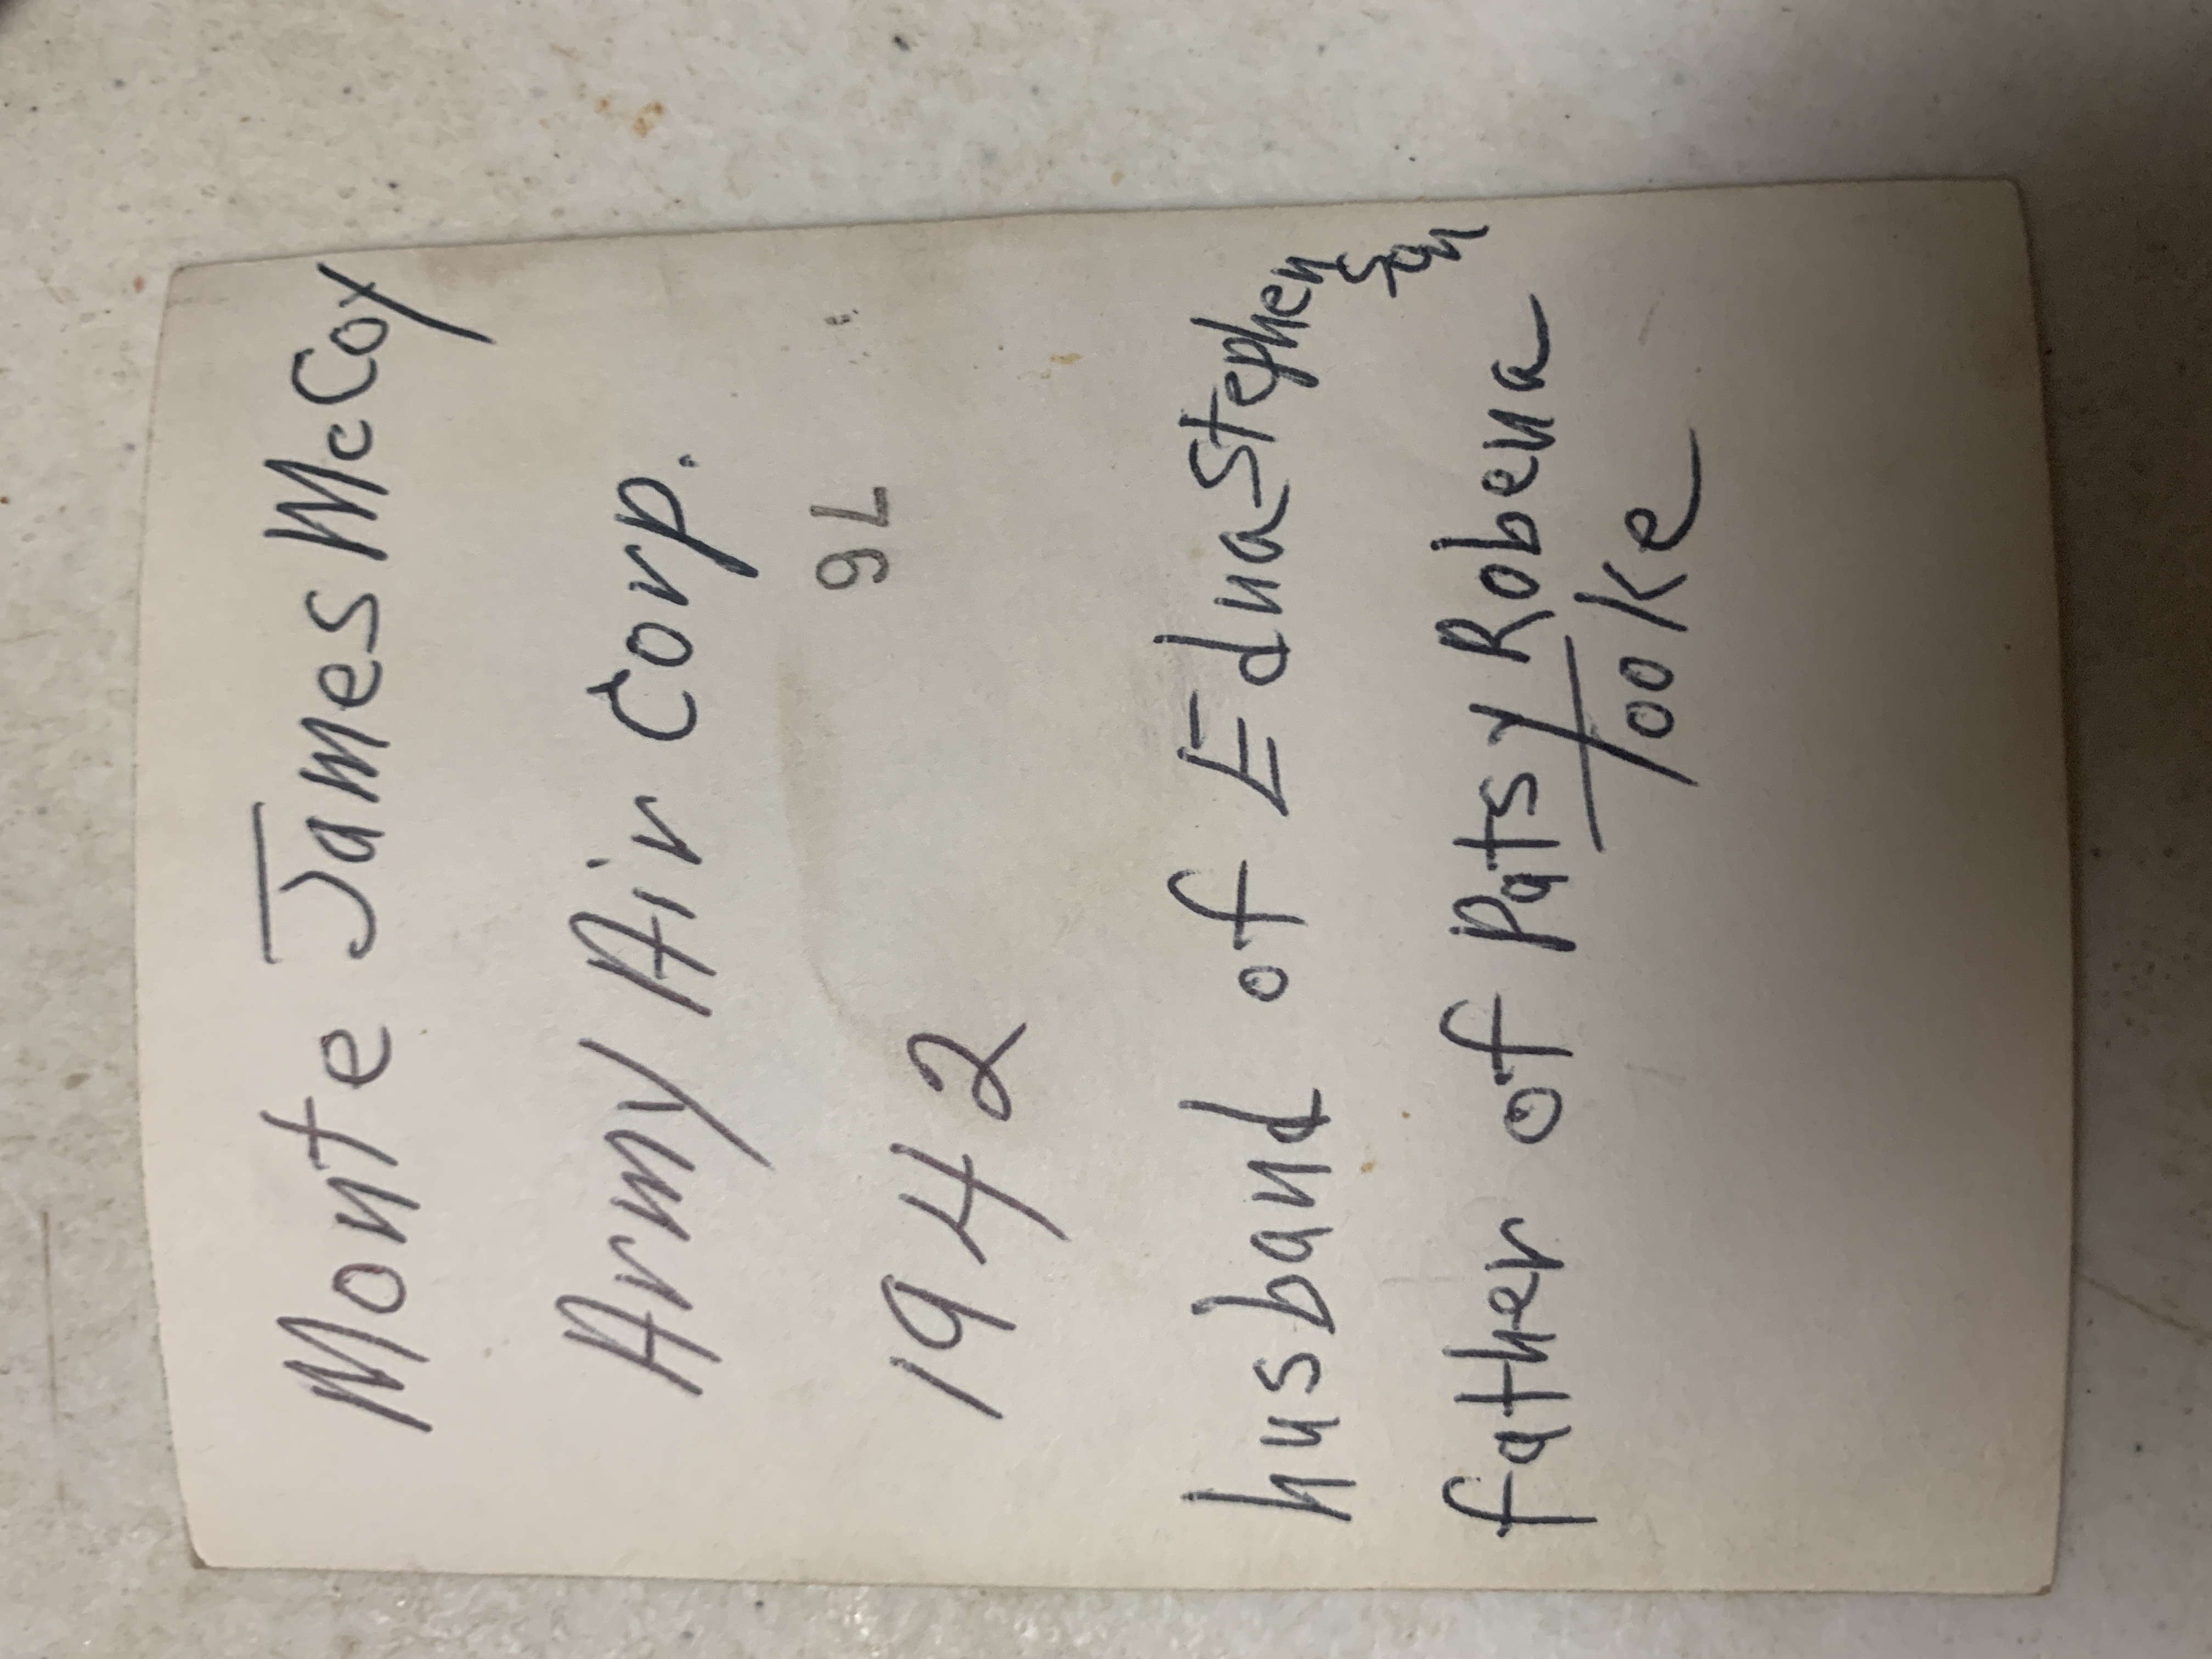 Monte James McCoy
Army Air Corp.
76
1942
husband of Edna Stephenson
father of Patsy Robena
Tooke